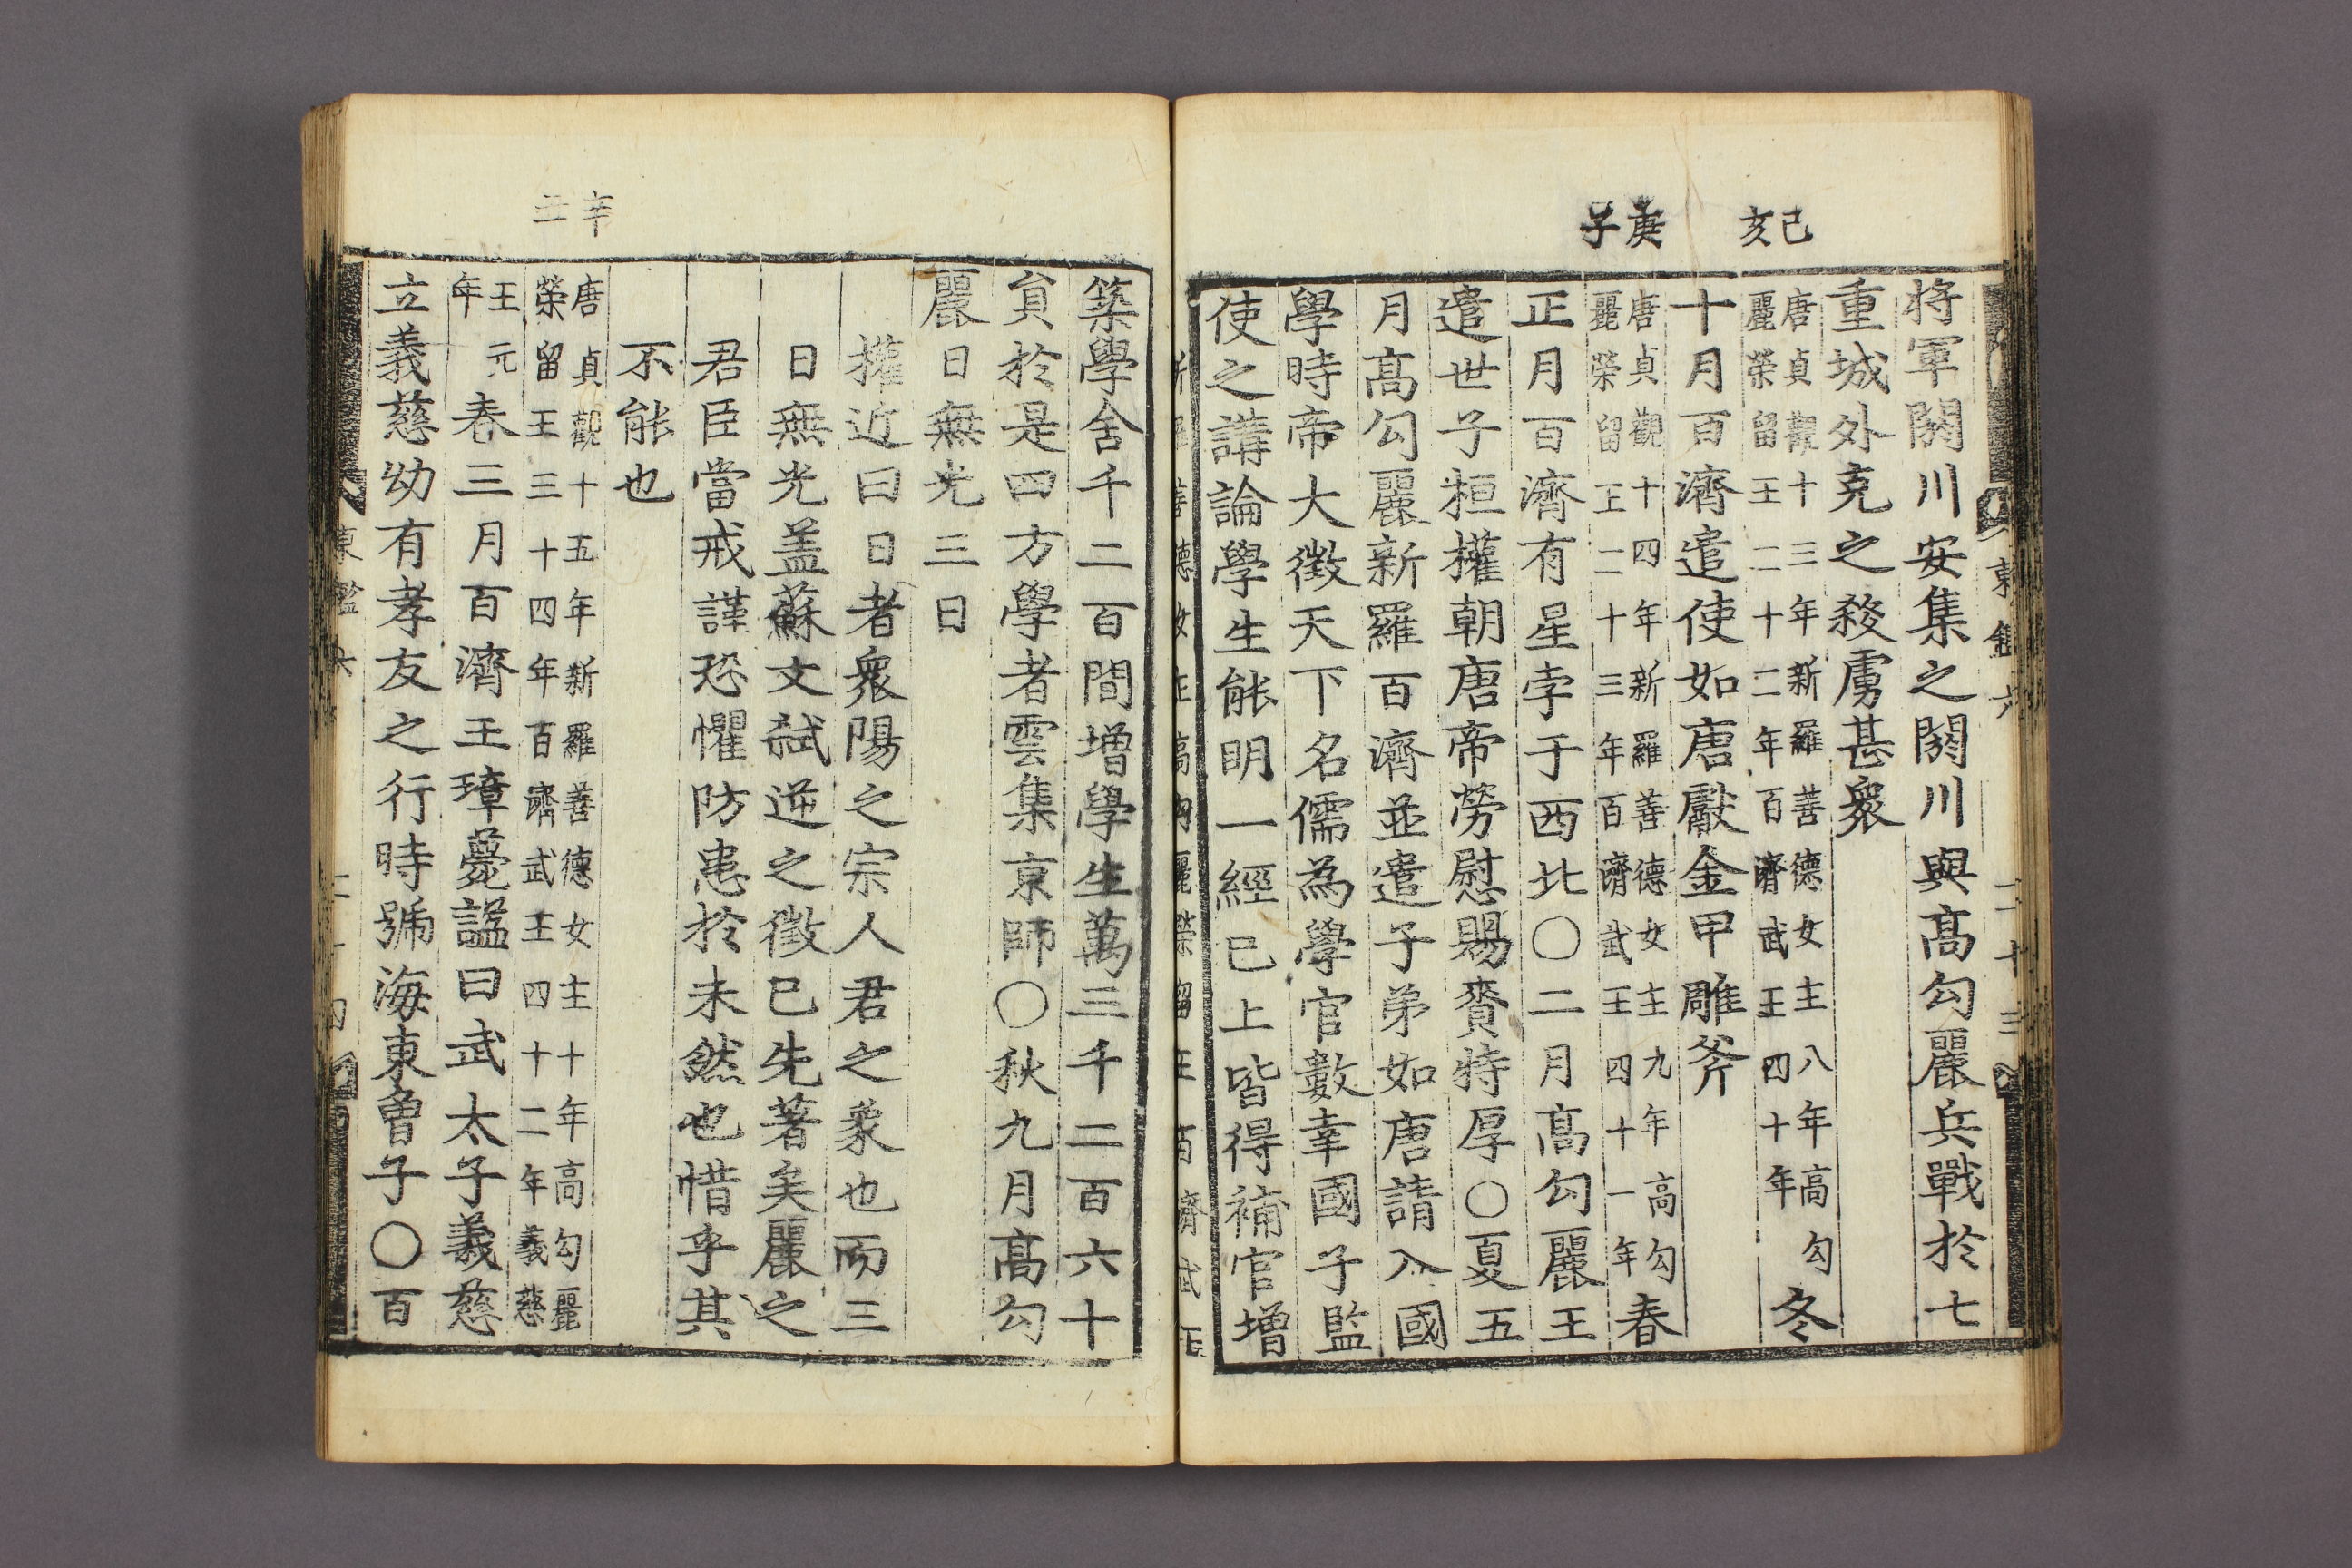 己亥
庚子
將軍閼川安集之閼川與高勾麗兵戰於七
重城外克之殺虜甚衆
唐貞觀十三年新羅善德女主八年高勾
麗榮留王二十二年百濟武王四十年
冬
十月百濟遣使如唐獻金甲雕斧
唐貞觀十四年新羅善德女主九年高勾
麗榮留王二十三年百濟武王四十一年
春
正月百濟有星孛于西北〇二月高勾麗王
遣世子桓權朝唐帝勞慰賜賚特厚〇夏五
月高勾麗新羅百濟並遣子弟如唐請入國
學時帝大徵天下名儒為學官數幸國子監
使之講論學生能明一經已上皆得補官增
東鑑六
二十三
辛丑
築學舍千二百間增學生萬三千二百六十
貟於是四方學者雲集京師〇秋九月高勾
麗日無光三日
權近曰日者衆陽之宗人君之象也而三
日無光盖蘇文弑逆之徵已先著矣麗之
君臣當戒謹恐懼防患於未然也惜乎其
不能也
唐貞觀十五年新羅善德女主十年高勾麗
榮留王三十四年百濟武王四十二年義慈
王元
年
春三月百濟王璋薨諡曰武太子義慈
立義慈幼有孝友之行時號海東曾子〇百
東鑑六